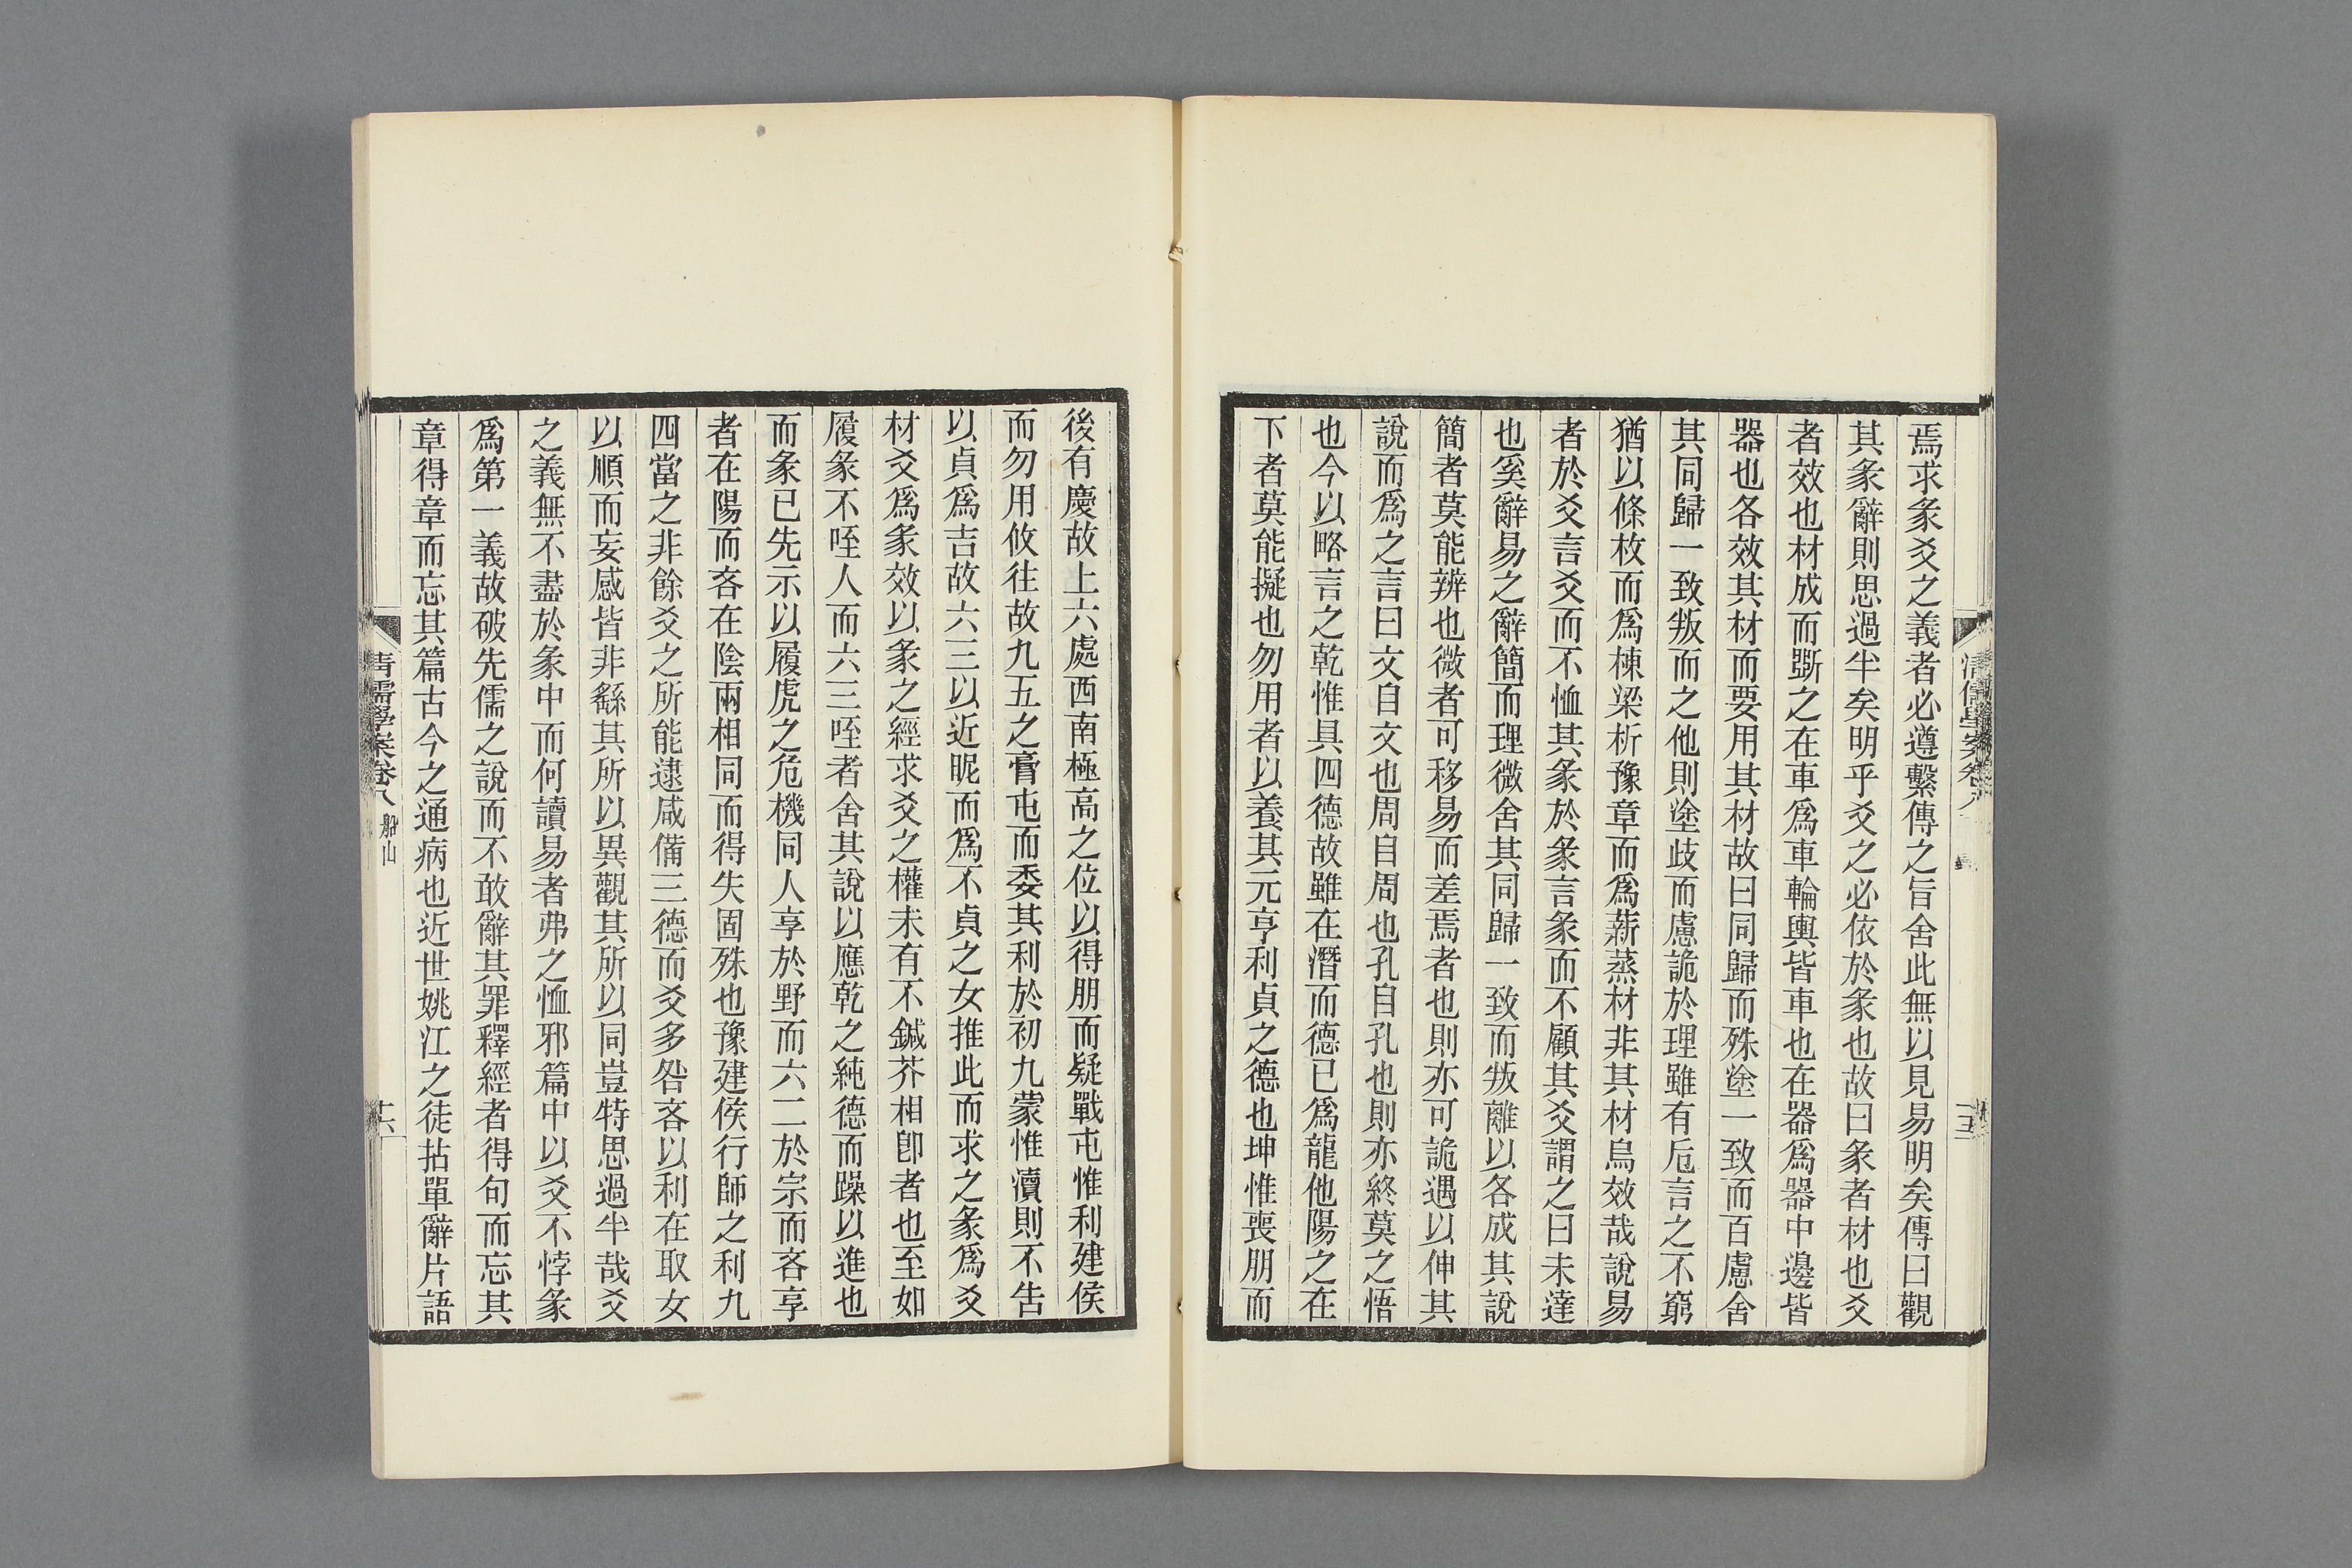 焉求彖爻之義者必遵繫傳之旨舍此無以見易明矣傳曰觀
其彖辭則思過半矣明乎爻之必依於彖也故曰彖者材也爻
者效也材成而斲之在車爲車輪輿皆車也在器爲器中邊皆
器也各效其材而要用其材故曰同歸而殊塗一致而百慮舍
其同歸一致叛而之他則塗歧而慮詭於理雖有卮言之不窮
猶以條枚而爲棟梁析豫章而爲薪蒸材非其材烏效哉說易
者於爻言爻而不恤其彖於彖言彖而不顧其爻謂之曰未達
也奚辭易之辭簡而理微舍其同歸一致而叛離以各成其說
簡者莫能辨也微者可移易而差焉者也則亦可詭遇以伸其
說而爲之言曰文自文也周自周也孔自孔也則亦終莫之悟
也今以略言之乾惟具四德故雖在潛而德已爲龍他陽之在
下者莫能擬也勿用者以養其元亨利貞之德也坤惟喪朋而
後有慶故上六處西南極高之位以得朋而疑戰屯惟利建侯
而勿用攸往故九五之膏屯而委其利於初九蒙惟瀆則不告
以貞爲吉故六三以近昵而爲不貞之女推此而求之彖爲爻
材爻爲彖效以彖之經求爻之權未有不鍼芥相卽者也至如
履彖不咥人而六三咥者舍其說以應乾之純德而躁以進也
而彖已先示以履虎之危機同人亨於野而六二於宗而吝亨
者在陽而吝在陰兩相同而得失固殊也豫建侯行師之利九
四當之非餘爻之所能逮咸備三德而爻多咎吝以利在取女
以順而妄感皆非繇其所以異觀其所以同豈特思過半哉爻
之義無不盡於彖中而何讀易者弗之恤邪篇中以爻不悖彖
爲第一義故破先儒之說而不敢辭其罪釋經者得句而忘其
章得章而忘其篇古今之通病也近世姚江之徒拈單辭片語
清儒學案卷八 船山
十六